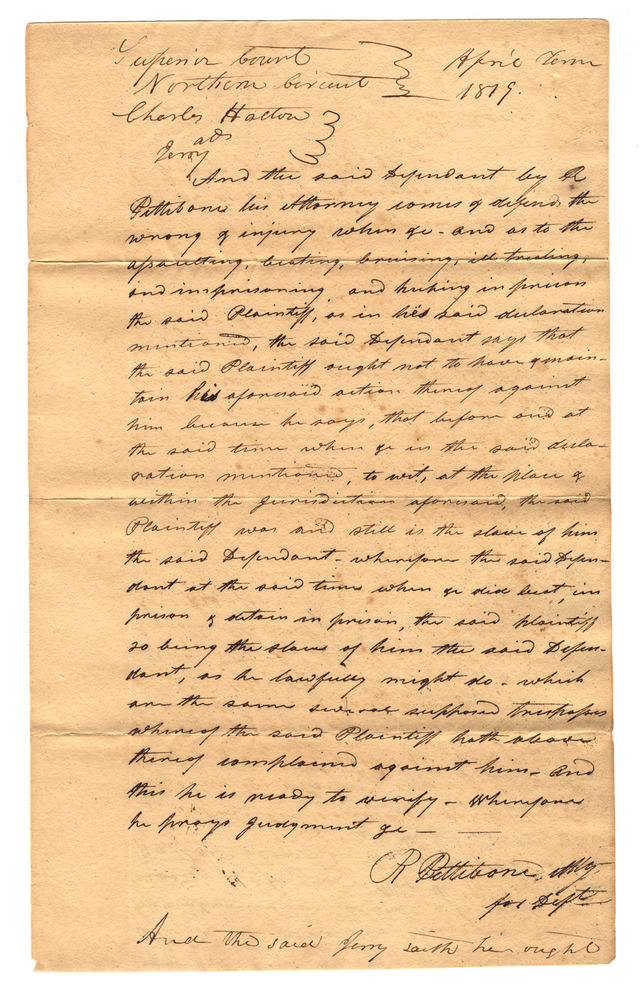 Superior Court
Northern Circuit
April Term
1819.
Charles Hatton
ads
Jerry
And the said Defendant by R
Pettibone his Attorney comes & defend the
wrong & injury when &c - and as to the
assaulting, beating, bruising, ill treating,
and imprisoning and keeping in prison
the said Plaintiff, as in his said declaration
mentioned, the said Defendant says that
the said Plaintiff ought not to have & main-
tain his aforesaid action thereof against
him because he says, that before and at
the said time when &c in the said decla-
ration mentioned, to wit, at the place &
within the Jurisdiction aforesaid, the said
Plaintiff was and still is the slave of him
the said Defendant - wherefore the said Defen-
dant at the said time when &c did beat, im
prison & detain in prison, the said plaintiff
so being the slave of him the said Defen-
dant, as he lawfully might do - which
are the same several supposed trespasses
whereof the said Plaintiff hath above
thereof complained against him - And
this he is ready to verify - Wherefore
he prays Judgment &c -
R Pettibone, Atty.
for Deft
And the said Jerry saith he ought